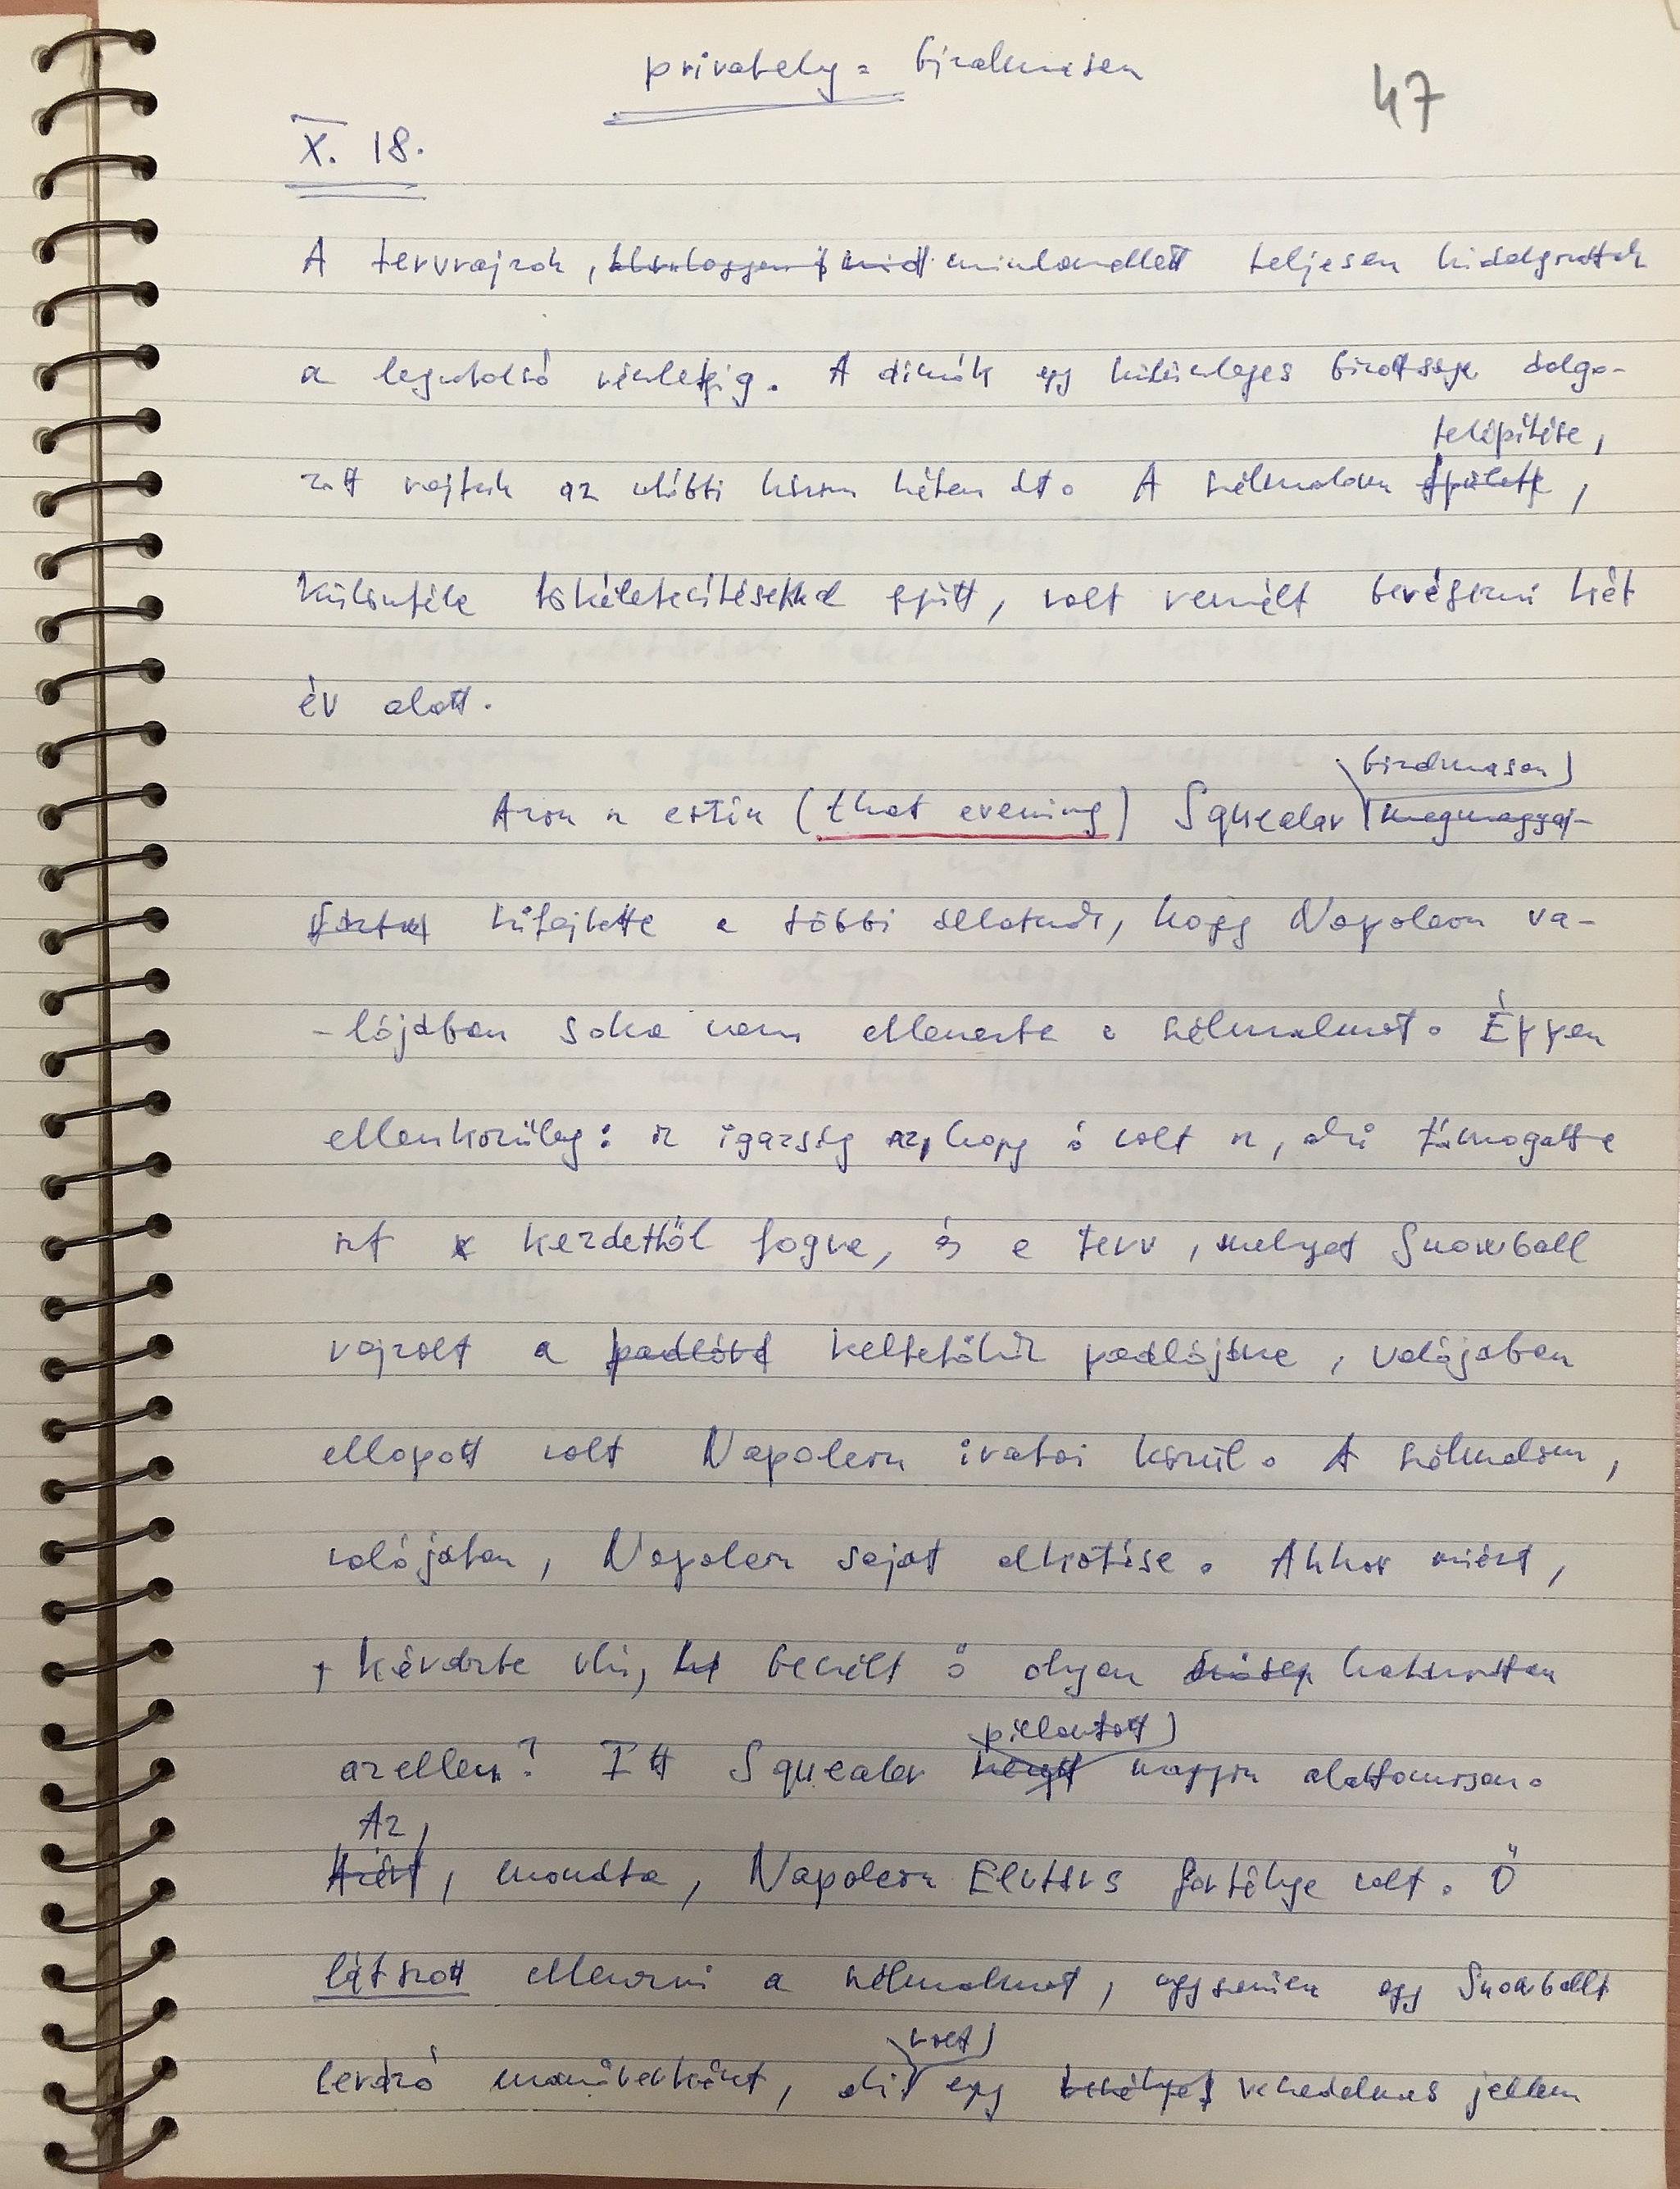 privately = bizalmasan
47
X. 18.
A tervrajzok, mindamellett teljesen kidolgoztak
a legutolsó részletig. A disznók egy különleges bizottsága dolgo-
telepítése,
zott rajtuk az utóbbi három héten át. A szélmalom épülete,
különféle tökéletesítésekkel együtt, volt remélt bevégezni két
év alatt.
bizalmasan
Azon az estén (that evening) Squealar megmagya-
rázta kifejtette a többi állatnak, hogy Napoleon va-
-lójában soha nem ellenezte a szélmalmot. Éppen
ellenkezőleg: az igazság az, hogy ő volt az, aki támogatta
azt kezdettől fogva, és a terv, melyet Snowball
rajzolt a padlóra keltetőház padlójára, valójában
ellopott volt Napoleon iratai közül. A szélmalom,
valójában, Napoleon saját alkotása. Akkor miért,
kérdezte vki, beszélt ő olyan határozottan
azellen? Itt Squealer nagyon alattomosan.
pillantott
Az,
Azért, mondta, Napoleon Elvtárs fortélya volt. Ő
látszott ellenezni a szélmalmot, egyszerűen egy Snowballt
volt
lerázó manőverként, aki egy veszélyes veszedelmes jellem